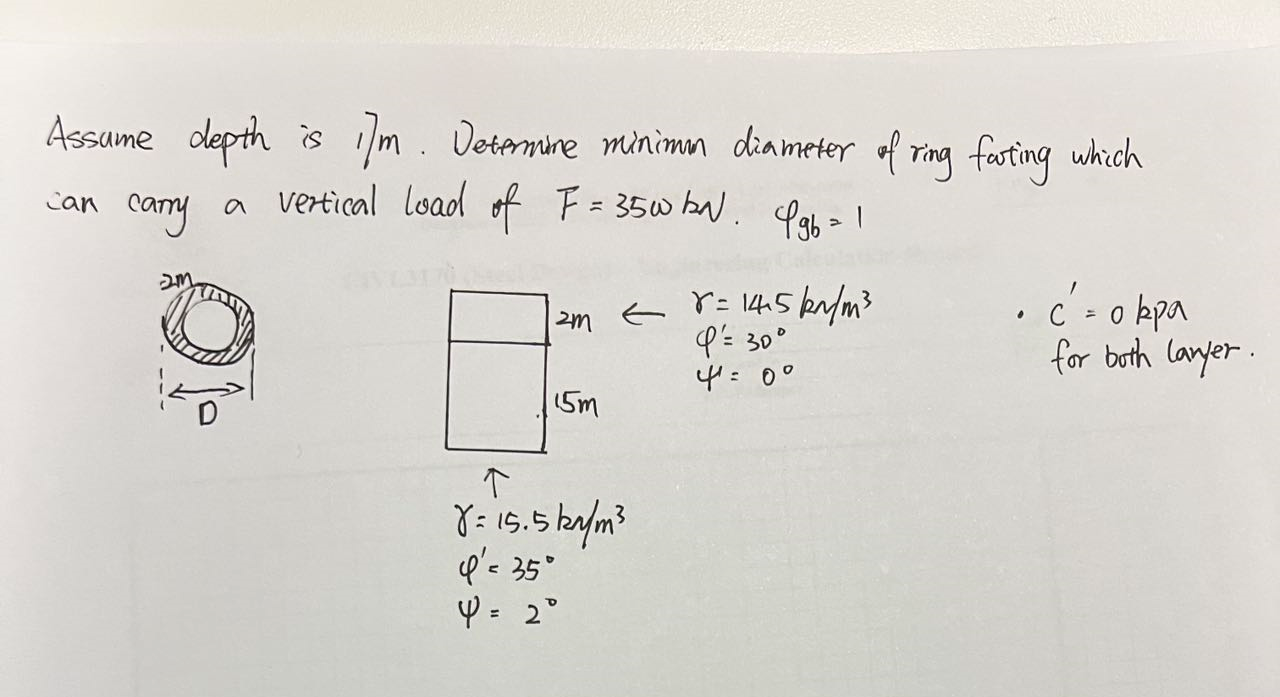 Assume depth is 17m. Determine minimun diameter of ring footing which
can carry a vertical load of F = 3500 kN. φgb = 1
2m
D
2m
15m
← γ = 14.5 kN/m³
φ' = 30°
ψ = 0°
• c' = 0 kpa
for both lanyer.
↑
γ = 15.5 kN/m³
φ' = 35°
ψ = 2°